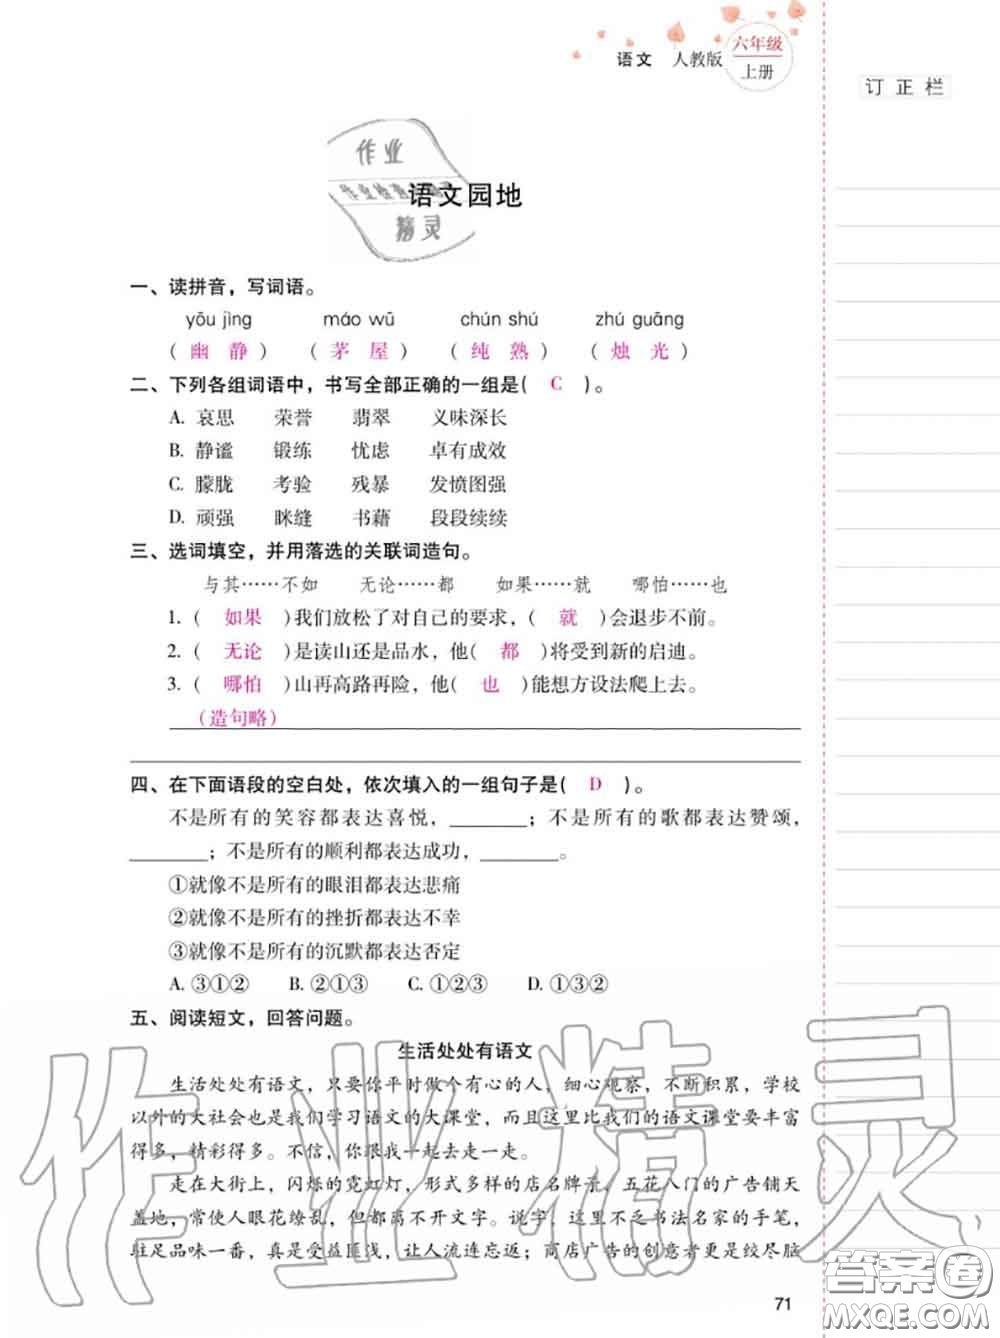 语文 人教版 六年级
上册
订 正 栏
作业
作业检查
精灵
语文园地
一、读拼音，写词语。
yōu jìng máo wū chún shú zhú guāng
( 幽 静 ) ( 茅 屋 ) ( 纯 熟 ) ( 烛 光 )
二、下列各组词语中，书写全部正确的一组是( C )。
A. 哀思 荣誉 翡翠 义味深长
B. 静谧 锻练 忧虑 卓有成效
C. 朦胧 考验 残暴 发愤图强
D. 顽强 眯缝 书藉 段段续续
三、选词填空，并用落选的关联词造句。
与其……不如 无论……都 如果……就 哪怕……也
1. ( 如果 )我们放松了对自己的要求，( 就 )会退步不前。
2. ( 无论 )是读山还是品水，他( 都 )将受到新的启迪。
3. ( 哪怕 )山再高路再险，他( 也 )能想方设法爬上去。
(造句略)
四、在下面语段的空白处，依次填入的一组句子是( D )。
不是所有的笑容都表达喜悦，_______；不是所有的歌都表达赞颂，
_______；不是所有的顺利都表达成功，_______。
①就像不是所有的眼泪都表达悲痛
②就像不是所有的挫折都表达不幸
③就像不是所有的沉默都表达否定
A. ③①② B. ②①③ C. ①②③ D. ①③②
五、阅读短文，回答问题。
生活处处有语文
生活处处有语文，只要你平时做个有心的人，细心观察，不断积累，学校
以外的大社会也是我们学习语文的大课堂，而且这里比我们的语文课堂要丰富
得多，精彩得多。不信，你跟我一起去走一走。
走在大街上，闪烁的霓虹灯，形式多样的店名牌子，五花八门的广告铺天
盖地，常使人眼花缭乱，但都离不开文字。说字，这里不乏书法名家的手笔，
驻足品味一番，真是受益匪浅，让人流连忘返；商店广告的创意者更是绞尽脑
作业精灵
答案圈
MXQE.COM
71